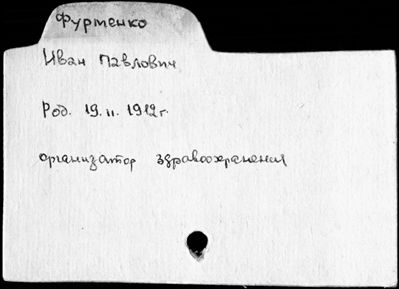 Фурменко
Иван Павлович
Род. 19.II.1912г.
организатор здравоохранения